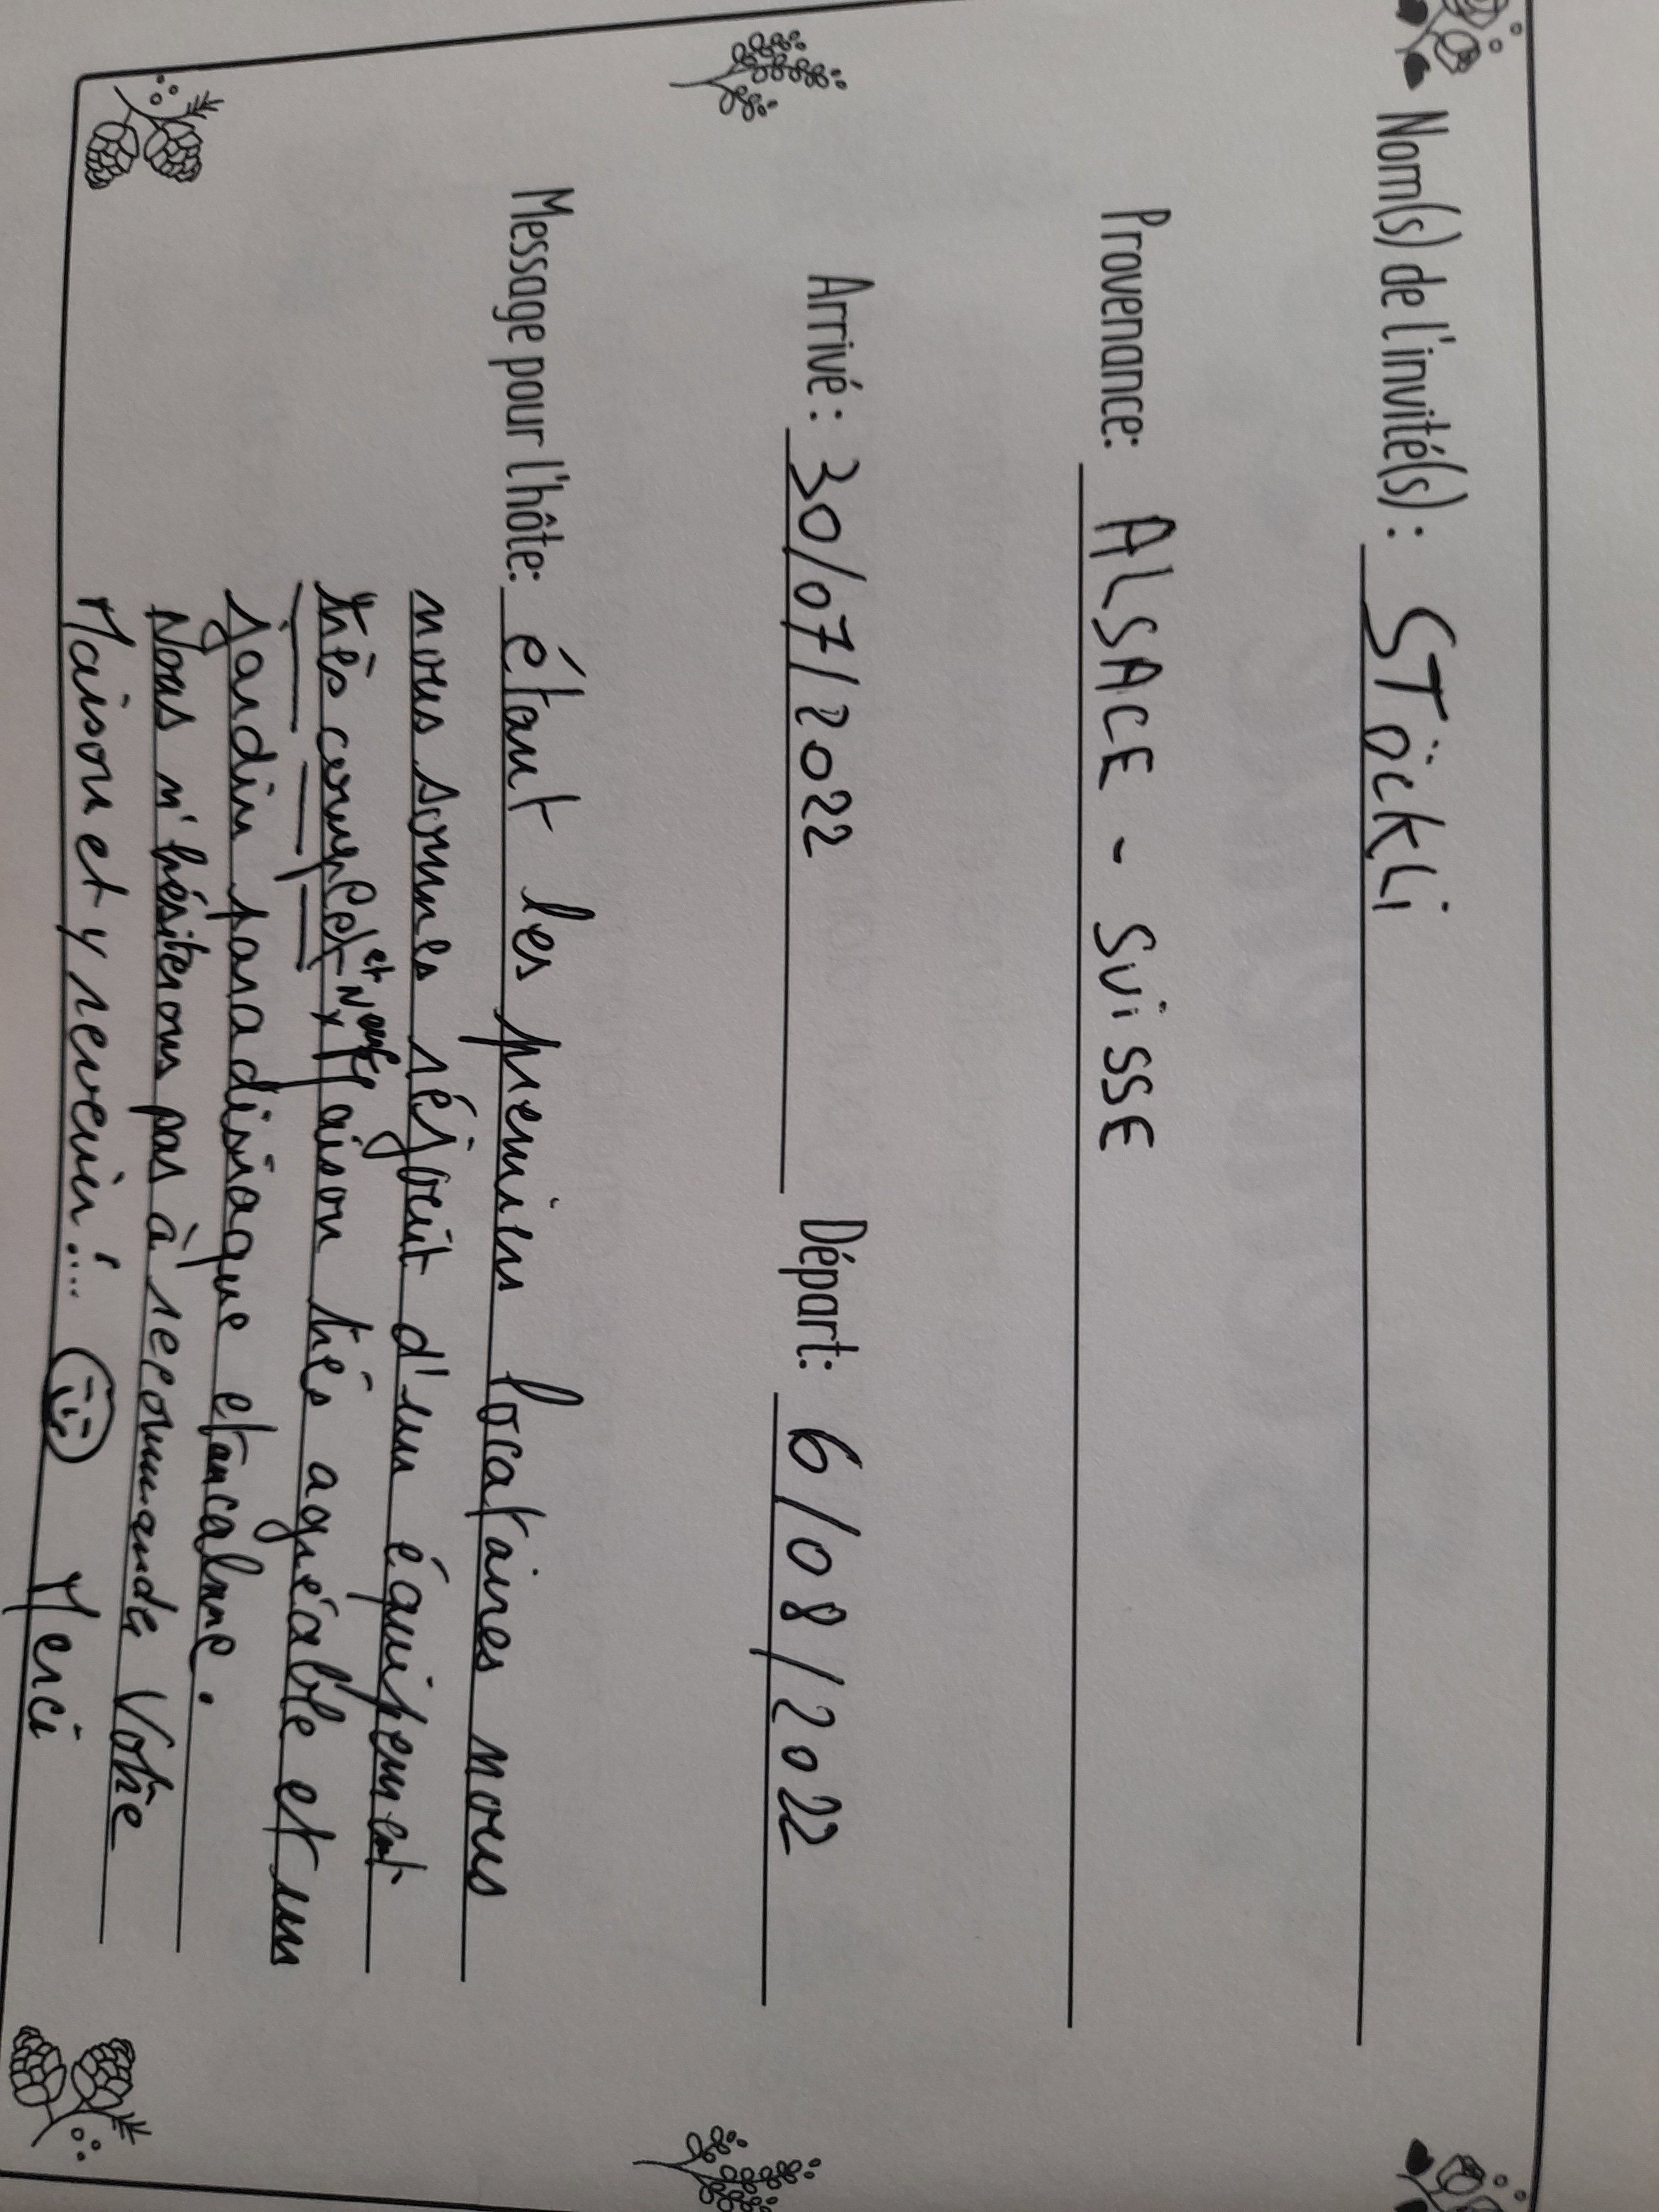 Nom(s) de l'invité(s) : STÖCKLi
Provenance: ALSACE - SUiSSE
Arrivé : 30/07/2022 Départ: 6/08/2022
Message pour l'hôte: étant les premiers locataires nous
nous sommes réjouit d'un équipement
très complet et Neuf x Maison très agréable et un
jardin paradisiaque et au calme.
Nous n'hésiterons pas à recommander Votre
Maison et y revenir !... Merci